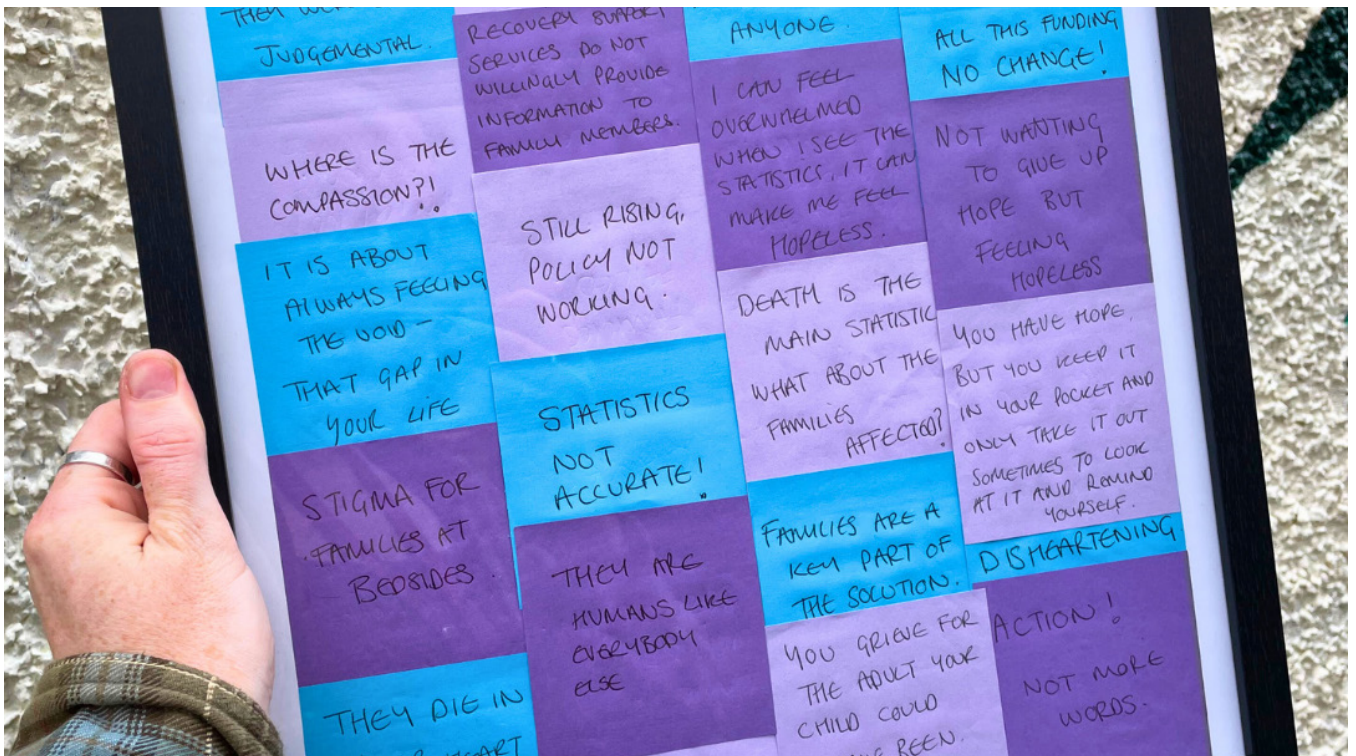 THEY WERE
JUDGEMENTAL.
WHERE IS THE
COMPASSION?!
IT IS ABOUT
ALWAYS FEELING
THE VOID –
THAT GAP IN
YOUR LIFE
STIGMA FOR
FAMILIES AT
BEDSIDES.
THEY DIE IN
RECOVERY SUPPORT
SERVICES DO NOT
WILLINGLY PROVIDE
INFORMATION TO
FAMILY MEMBERS.
STILL RISING,
POLICY NOT
WORKING.
STATISTICS
NOT
ACCURATE!
THEY ARE
HUMANS LIKE
EVERYBODY
ELSE
ANYONE.
I CAN FEEL
OVERWHELMED
WHEN I SEE THE
STATISTICS, IT CAN
MAKE ME FEEL
HOPELESS.
DEATH IS THE
MAIN STATISTIC
WHAT ABOUT THE
FAMILIES
AFFECTED?
FAMILIES ARE A
KEY PART OF
THE SOLUTION.
YOU GRIEVE FOR
THE ADULT YOUR
CHILD COULD
BEEN.
ALL THIS FUNDING
NO CHANGE!
NOT WANTING
TO GIVE UP
HOPE BUT
FEELING
HOPELESS
YOU HAVE HOPE,
BUT YOU KEEP IT
IN YOUR POCKET AND
ONLY TAKE IT OUT
SOMETIMES TO LOOK
AT IT AND REMIND
YOURSELF.
DISHEARTENING
ACTION!
NOT MORE
WORDS.